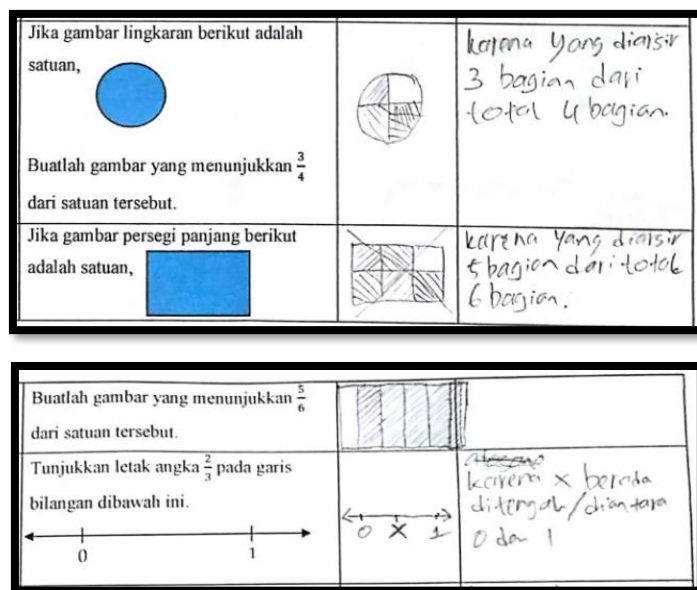 Jika gambar lingkaran berikut adalah
satuan,
Buatlah gambar yang menunjukkan 3/4
dari satuan tersebut.
karena yang diarsir
3 bagian dari
total 4 bagian.
Jika gambar persegi panjang berikut
adalah satuan,
karena yang diarsir
5 bagian dari total
6 bagian.
Buatlah gambar yang menunjukkan 5/6
dari satuan tersebut.
Tunjukkan letak angka 2/3 pada garis
bilangan dibawah ini.
0 1
0 x 1
karena x berada
ditengah/diantara
0 dan 1